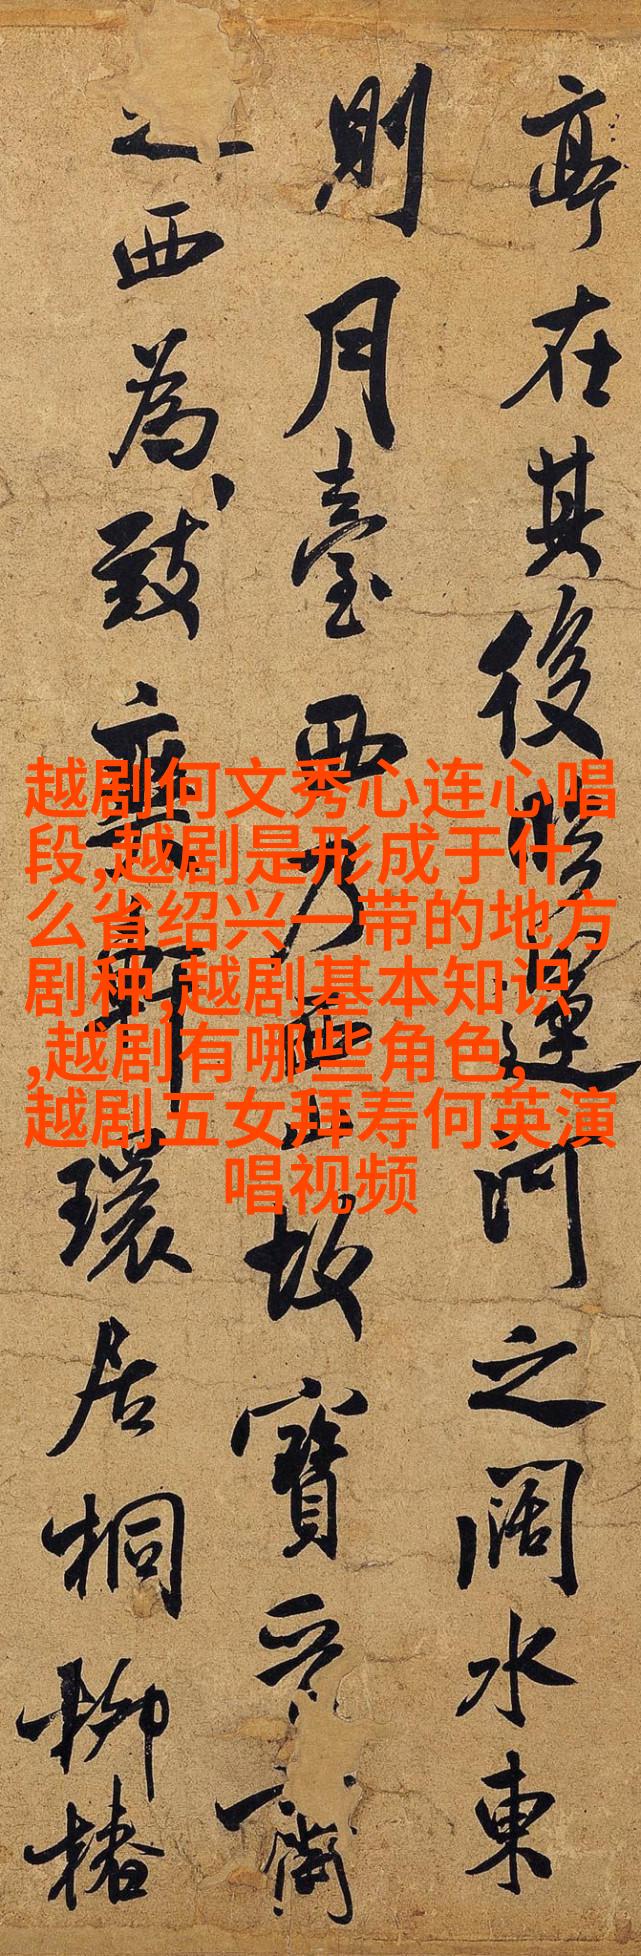 亭在其後臨運河之闊水東
則月臺西乃西山故寶晉齋
之西為致爽軒環居桐柳椿
越剧何文秀心连心唱
段,越剧是形成于什
么省绍兴一带的地方
剧种,越剧基本知识
,越剧有哪些角色,
越剧五女拜寿何英演
唱视频